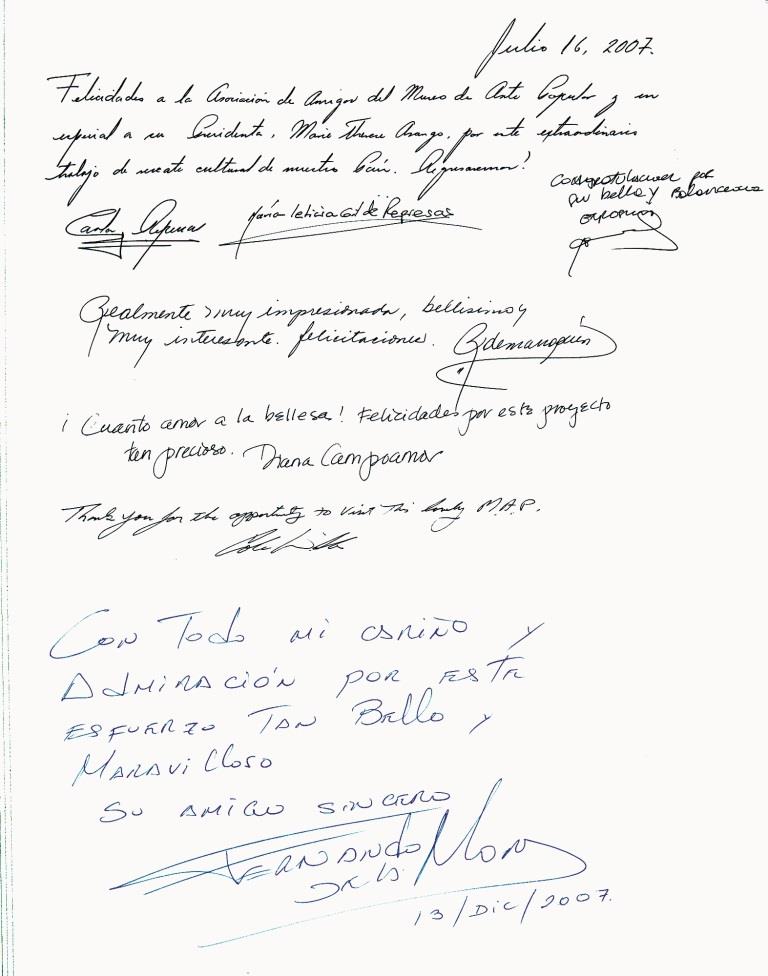 Julio 16, 2007.
Felicidades a la Asociación de Amigos del Museo de Arte Popular y en
especial a su Presidenta, Marie Therese Arango, por este extraordinario
trabajo de rescate cultural de nuestro País. Regresaremos!
Carlos Represas
María Leticia Gil de Represas
por
su bello y
Realmente muy impresionada, bellisimo y
muy interesante. felicitaciones.
¡Cuanto amor a la bellesa! Felicidades por este proyecto
tan precioso. Diana Campoamor
Thank you for the opportunity to visit this lovely M.A.P.
Con Todo mi cariño y
Admiración por este
esfuerzo Tan Bello y
Maravilloso
Su amigo sincero
Fernando
de la Mora
13/Dic/2007.